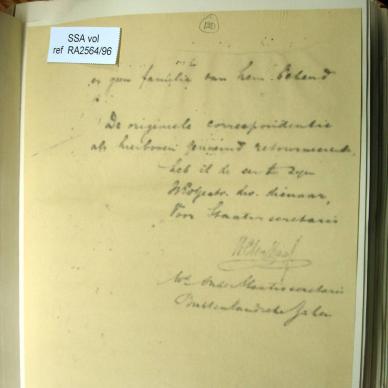 SSA vol
ref RA2564/96
130
er geen familie van hem bekend
is.
De origineele correspondentie
als hierboven genoemd retourneerende
heb ik de eer te zijn
UEdgestr. dw. dienaar,
Voor Staatssecretaris
Onder Staatssecretaris
Buitenlandsche Zaken